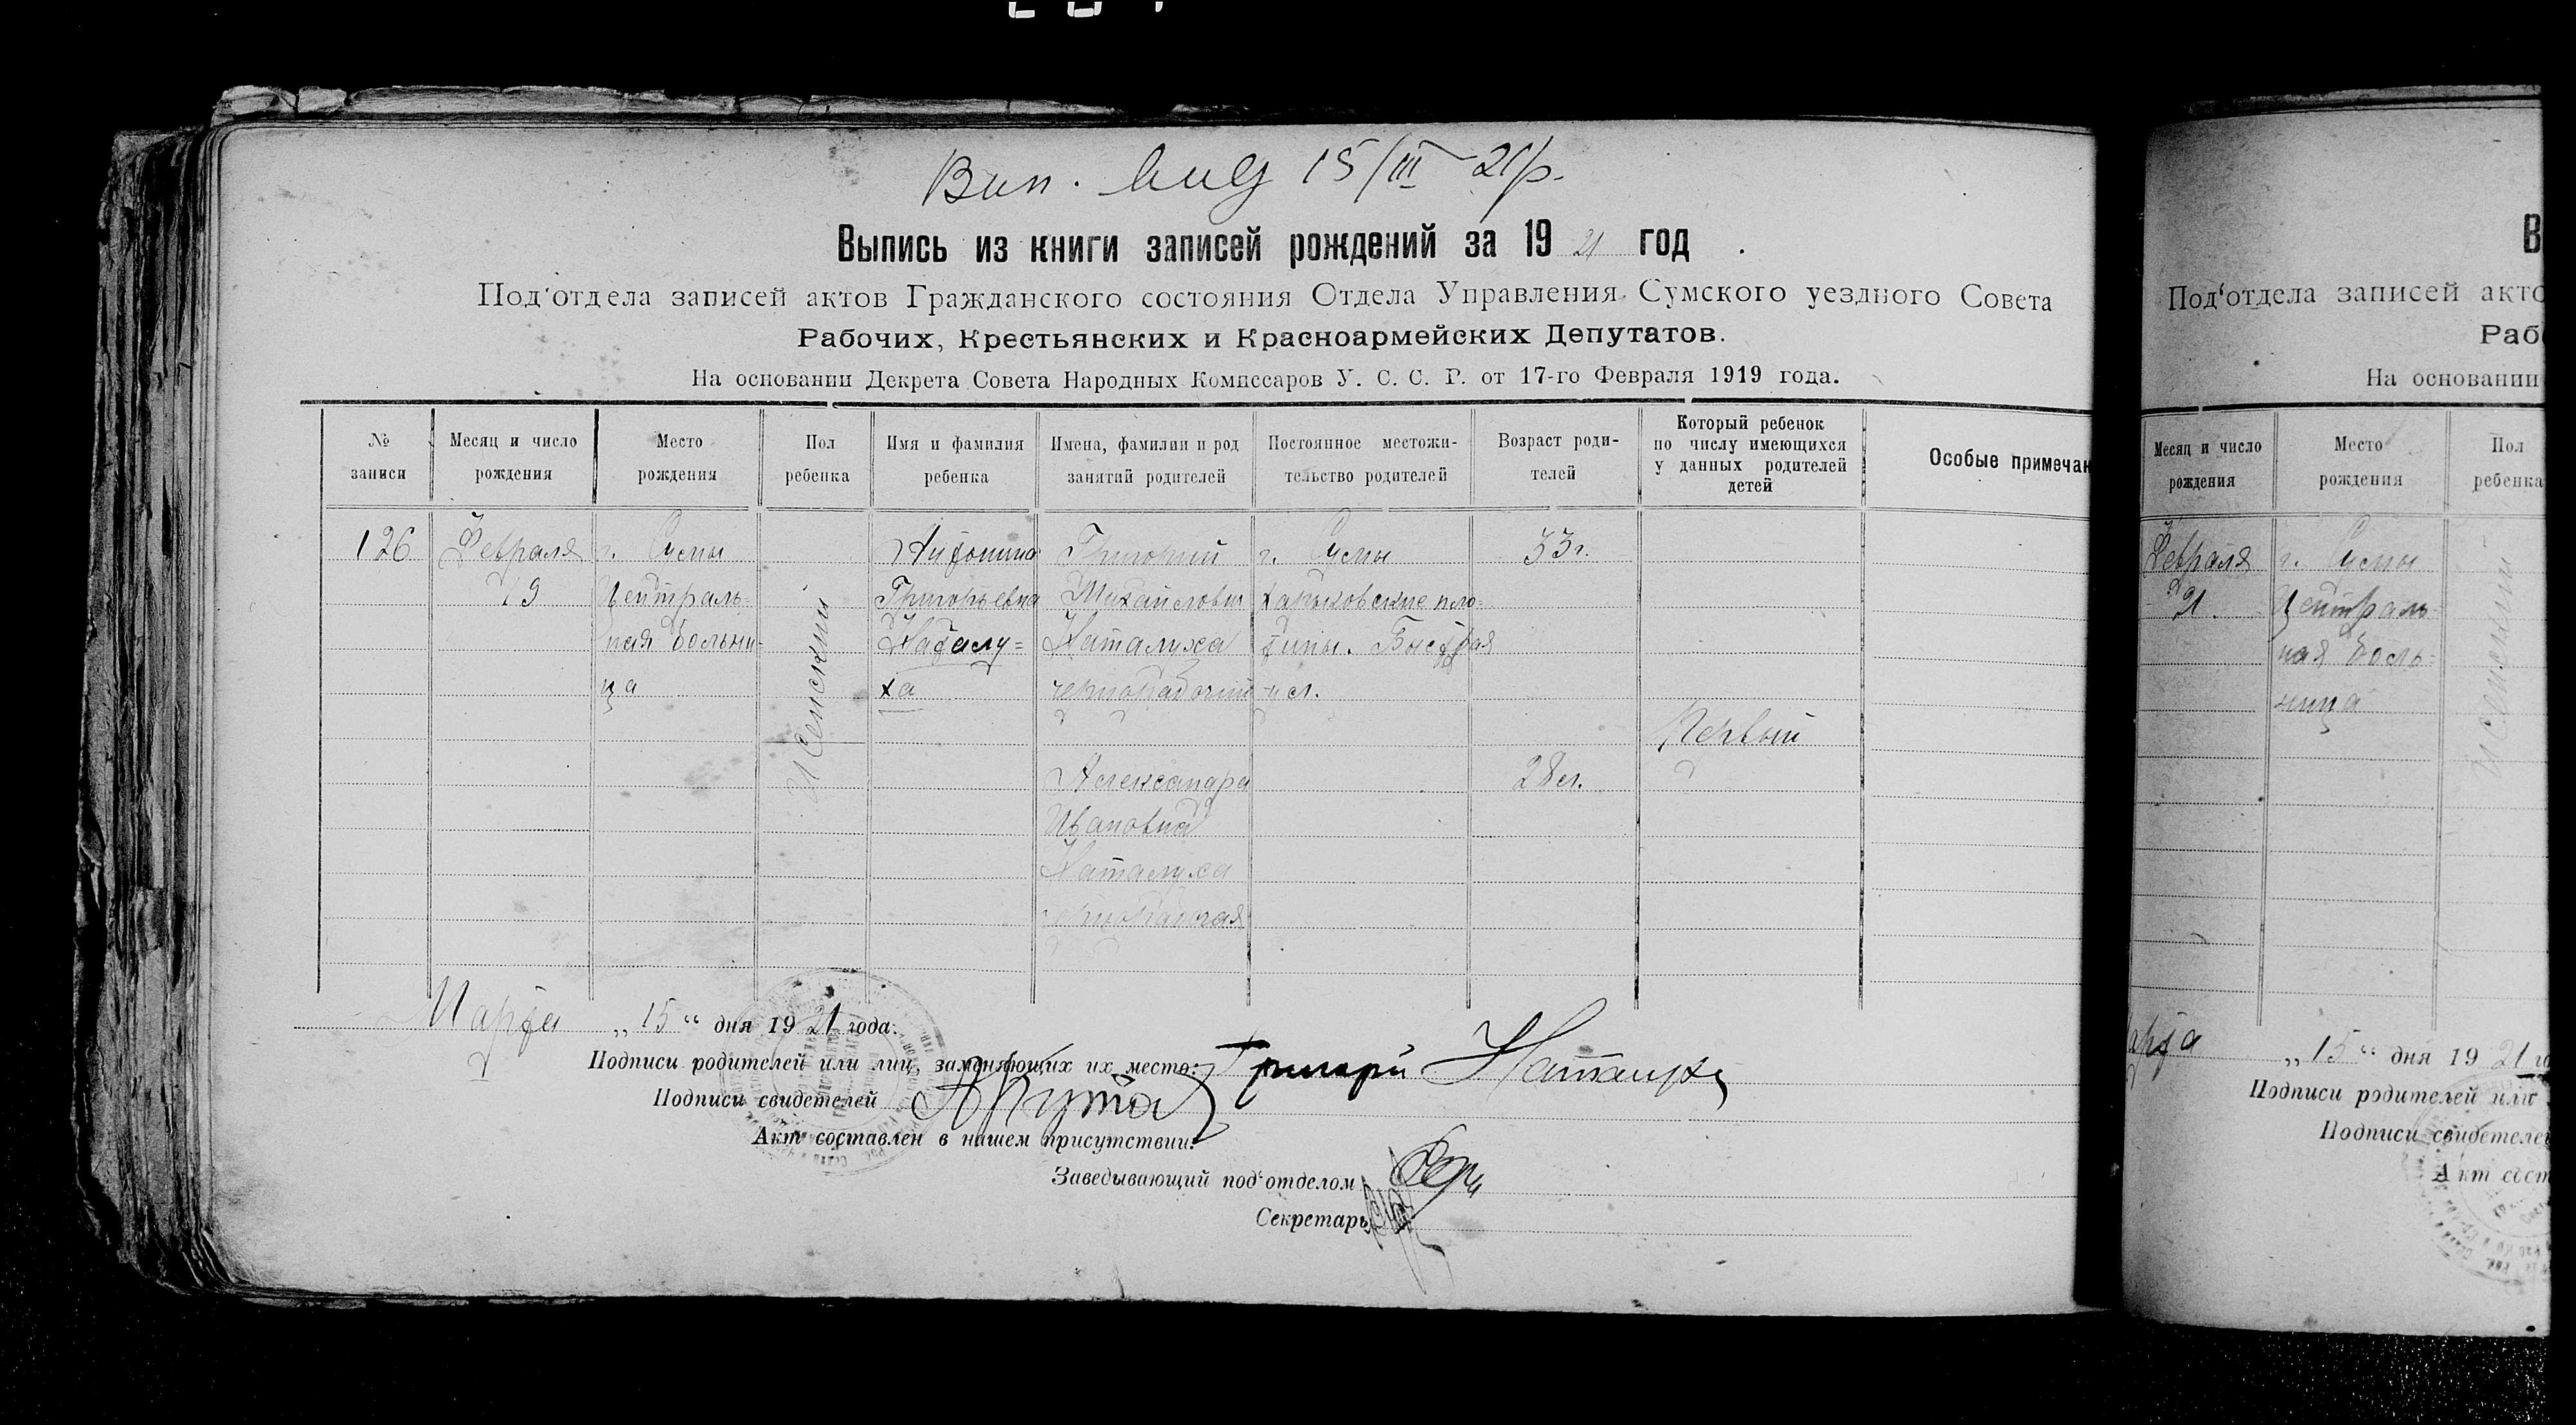 Вип. 15/III 21р.
Выпись из книги записей рождений за 1921 год
Под'отдела записей актов Гражданского состояния Отдела Управления Сумского уездного Совета
Рабочих, Крестьянских и Красноармейских Депутатов.
На основании Декрета Совета Народных Комиссаров У. С. С. Р. от 17-го Февраля 1919 года.
№ записи
Месяц и число рождения
Место рождения
Пол ребенка
Имя и фамилия ребенка
Имена, фамилии и род занятий родителей
Постоянное местожительство родителей
Возраст родителей
Который ребенок по числу имеющихся у данных родителей детей
Особые примечан
126
Февраля
19
г. Сумы
Централь-
ная больни-
ца
Женский
Антонина
Григорьевна
Наталу=
ха
Григорий
Михайлович
Наталуха
чернорабочий
Александра
Ивановна
Наталуха
чернорабочая
г. Сумы
Харьковские
33 г.
28 л.
Первый
Марта „15“ дня 1921 года.
Подписи родителей или лиц, заменяющих их место: Григорий Наталуха
Подписи свидетелей
Акт составлен в нашем присутствии:
Заведывающий под'отделом
Секретарь
В
Под'отдела записей акто
Раб
На основании
Месяц и число рождения
Место рождения
Пол ребенка
Февраля
21.
г. Сумы
Централь-
ная боль-
ница
Женский
арта „15“ дня 1921 го
Подписи родителей или
Подписи свидетелей
Акт сост